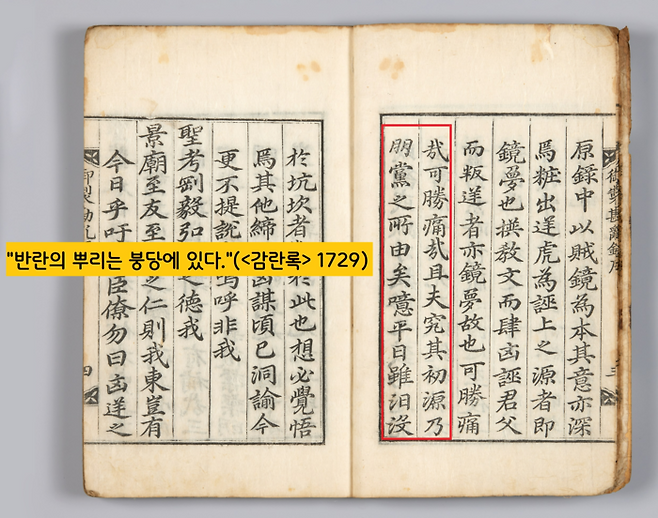 原錄中以賊鏡為本其意亦深
焉粧出逆虎為誣上之源者即
鏡夢也撰教文而肆凶誣君父
而叛逆者亦鏡夢故也可勝痛
哉可勝痛哉且夫究其初源乃
朋黨之所由矣噫平日雖汩沒
於坑坎者 於此也想必覺悟
焉其他締 凶謀頃已洞諭今
更不提說 嗚呼非我
聖考剛毅弘 之德我
景廟至友至 之仁則我東豈有
今日乎吁 臣僚勿曰凶逆之
四
"반란의 뿌리는 붕당에 있다."(<감란록> 1729)